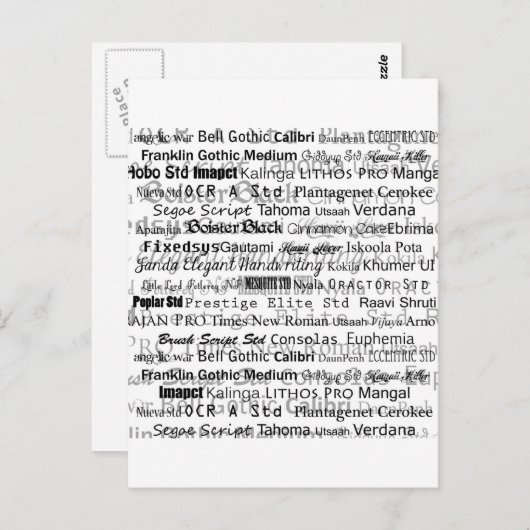 Place
zzle
angelic war Bell Gothic Calibri DaunPenh ECCENTRIC STD
Franklin Gothic Medium Giddyup Std Hawaii Killer
Hobo Std Imapct Kalinga LITHOS PRO Mangal
Nueva Std OCR A Std Plantagenet Cerokee
Segoe Script Tahoma Utsaah Verdana
Aparajita Bolster Black Cinnamon Cake Ebrima
Fixedsys Gautami Hawaii Lover Iskoola Pota
Janda Elegant Handwriting Kokila Khumer UI
MESQUITE STD Nyala ORACTOR STD
Poplar Std Prestige Elite Std Raavi Shruti
AJAN PRO Times New Roman Utsaah Vijaya Arno
Brush Script Std Consolas Euphemia
angelic war Bell Gothic Calibri DaunPenh ECCENTRIC STD
Franklin Gothic Medium Giddyup Std Hawaii Killer
Imapct Kalinga LITHOS PRO Mangal
Nueva Std OCR A Std Plantagenet Cerokee
Segoe Script Tahoma Utsaah Verdana